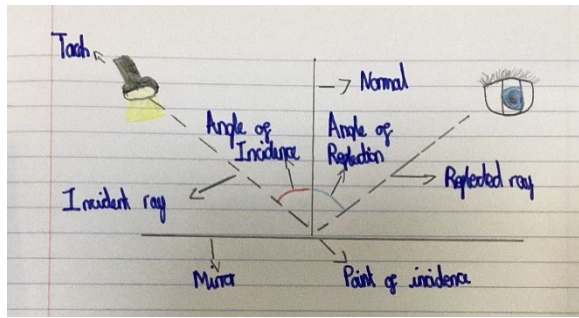 Torch
Normal
Angle of
Incidence
Angle of
Reflection
Incident ray
Reflected ray
Mirror
Point of incidence